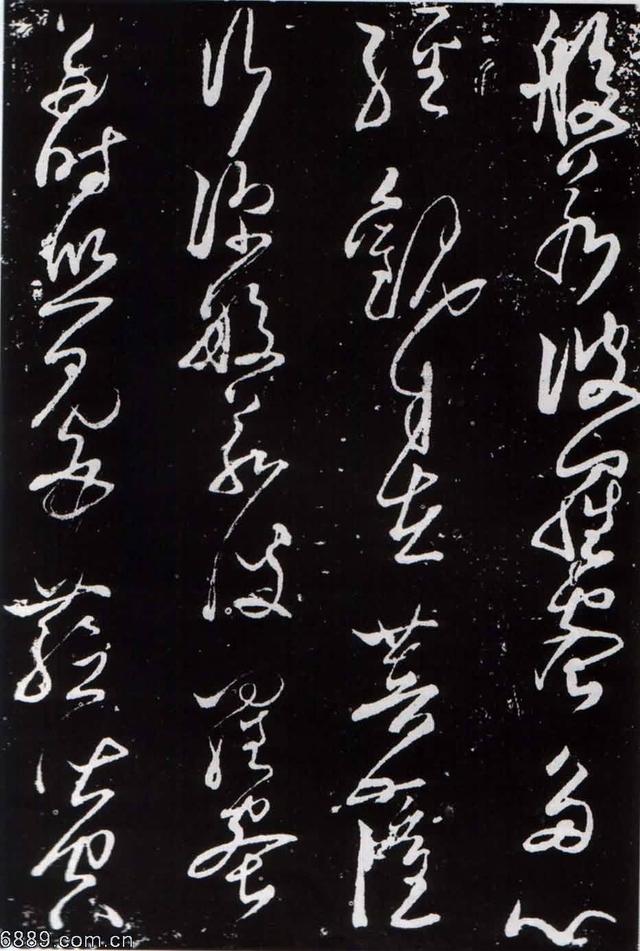 般若波羅蜜多心
經觀自在菩薩
行深般若波羅蜜
多時照見五蘊皆空
6889.com.cn